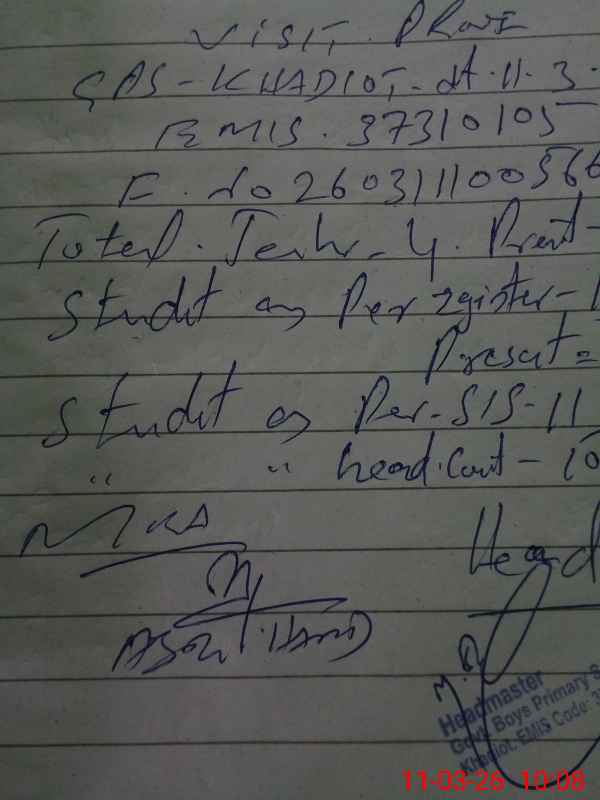 VISIT. PROF
GPS - KHADIOT, dt. 11. 3.
EMIS. 37310105
F. No 260311100566
Total. Teahr - 4. Prent -
Studt as Per rgister - 1
Presat =
Studt as Per - SIS - 11
" " head. Cout - 10
MKA
Head
M. D
Headmaster
Govt Boys Primary S
EMIS Code: 3
11-03-26 10:08